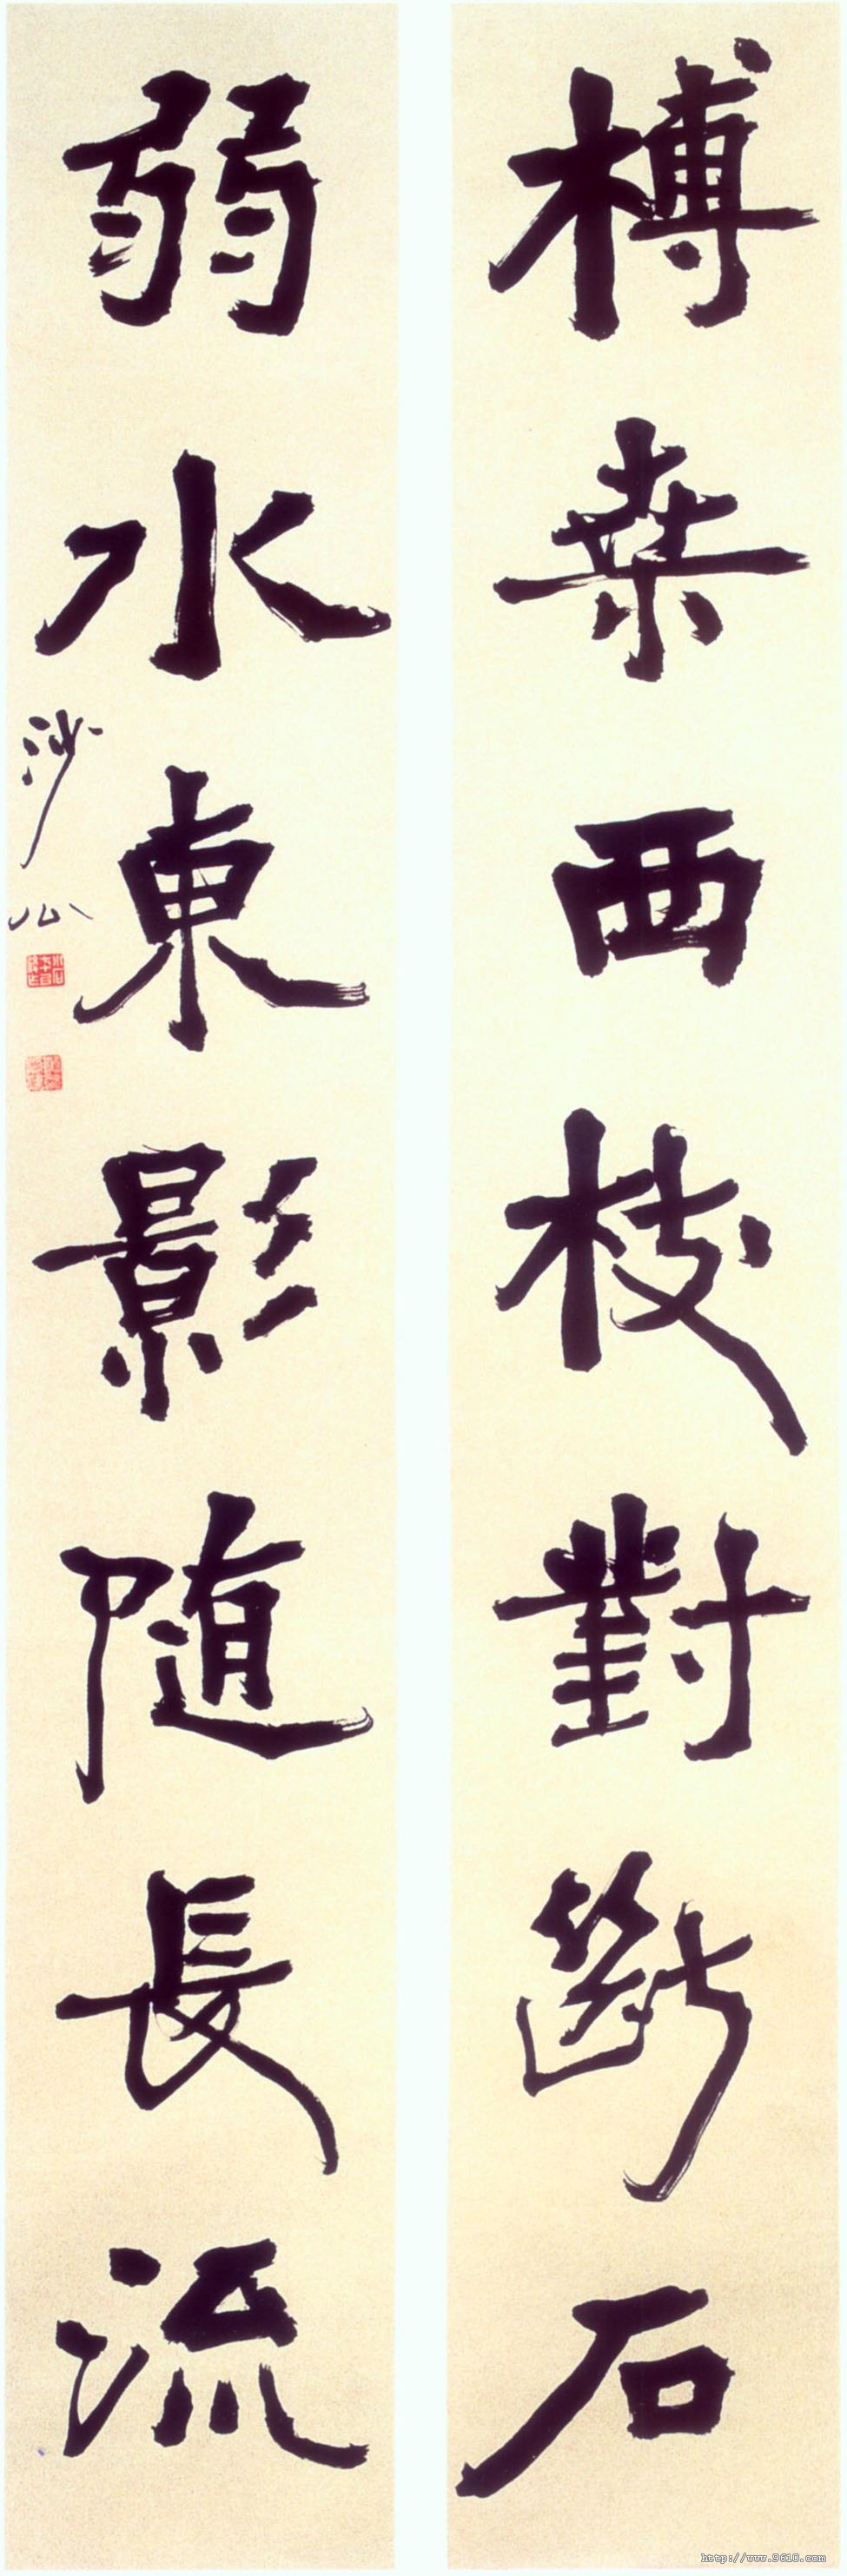 榑桒西枝對斷石
弱水東影随長流
沙公
http://www.9610.com